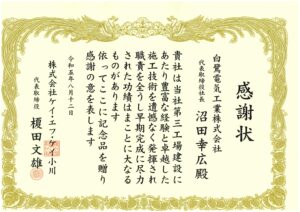 感謝状
白鷺電気工業株式会社
代表取締役社長
沼田幸広殿
貴社は当社第三工場建設に
あたり豊富な経験と卓越した
施工技術を遺憾なく発揮され
職責を全うし早期完成に尽力
された功績はまことに大なる
ものがあります
依ってここに記念品を贈り
感謝の意を表します
令和五年八月十二日
株式会社ケイ・エフ・ケイ小川
代表取締役
榎田文雄